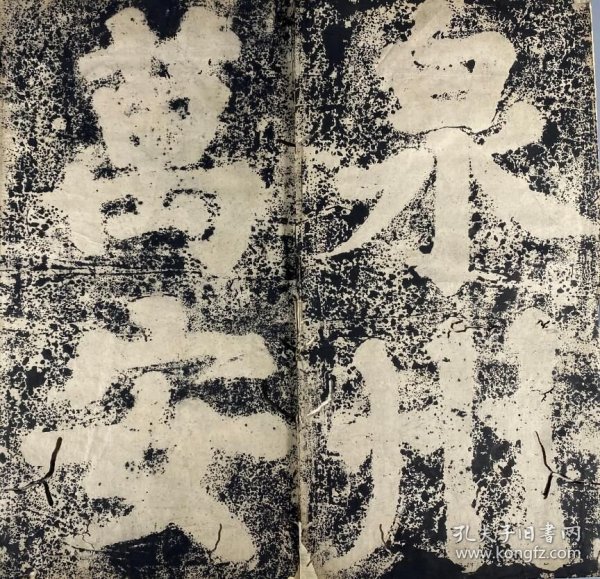 泉州
萬安
孔夫子旧书网
www.kongfz.com